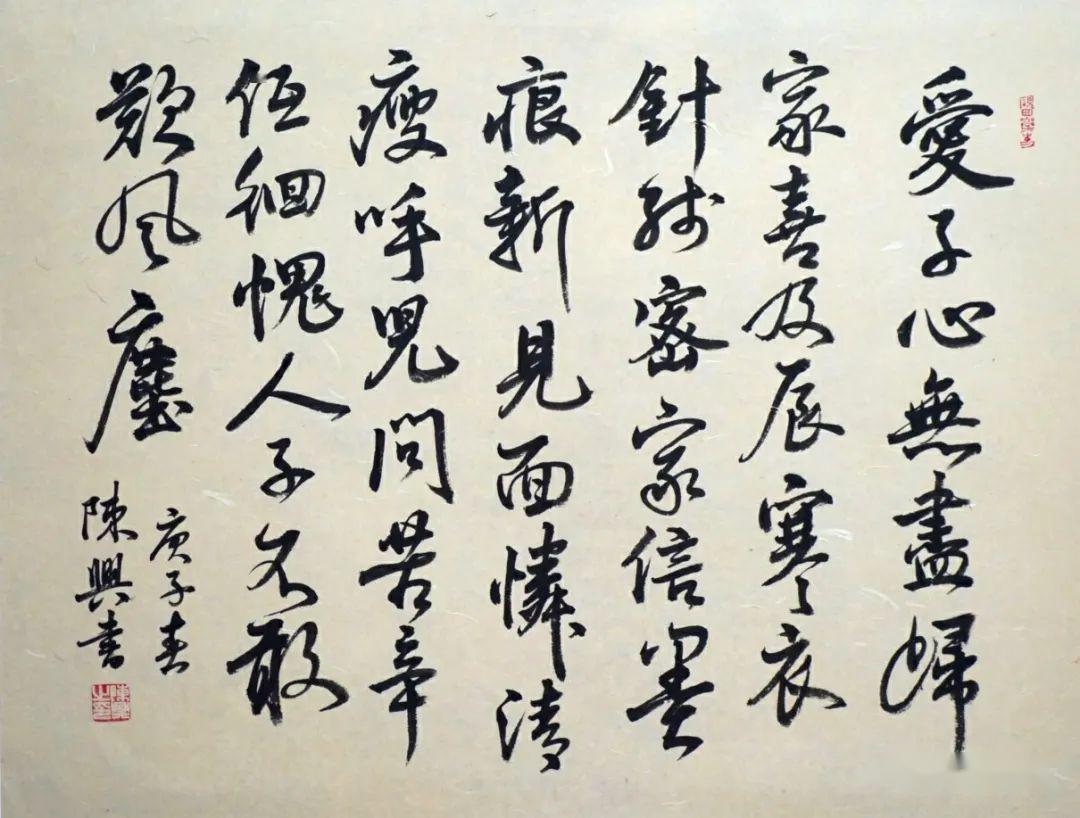 愛子心無盡歸
家喜及辰寒衣
針綫密家信墨
痕新見面憐清
瘦呼兒問苦辛
低徊愧人子不敢
歎風塵
庚子春
陳興書